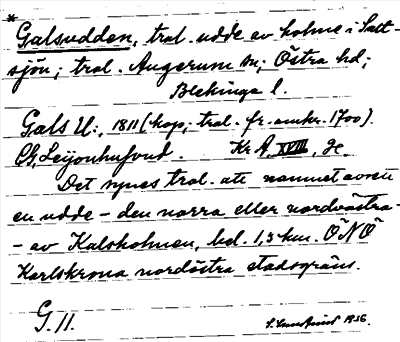 *
Galsudden, trol. udde av holme i Salt-
sjön; trol. Augerum sn; Östra hd;
Blekinge l.
Gals U:, 1811 (kop; trol. fr. omkr. 1700).
Ch. Leijonhufvud. Kr A, XVIII, Je.
Det synes trol. att namnet avser
en udde - den norra eller nordvästra -
- av Kalsholmen, bel. 1,3 km. ÖNÖ
Karlskrona nordöstra stadsgräns.
G. 11.
1936.